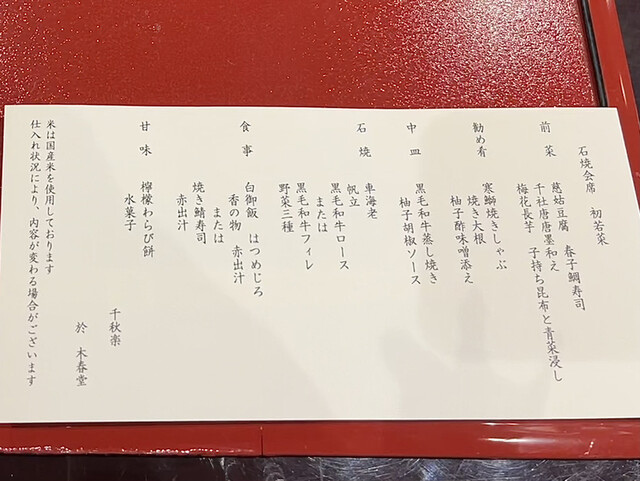 石焼会席　初若菜
前菜　慈姑豆腐　春子鯛寿司
千社唐唐墨和え
梅花長芋　子持ち昆布と青菜浸し
勧め肴　寒鰤焼きしゃぶ
焼き大根
柚子酢味噌添え
中皿　黒毛和牛蒸し焼き
柚子胡椒ソース
石焼　車海老
帆立
黒毛和牛ロース
または
黒毛和牛フィレ
野菜三種
食事　白御飯　はつめじろ
香の物　赤出汁
または
焼き鯖寿司
赤出汁
甘味　檸檬わらび餅
水菓子
千秋楽
於　木春堂
米は国産米を使用しております
仕入れ状況により、内容が変わる場合がございます